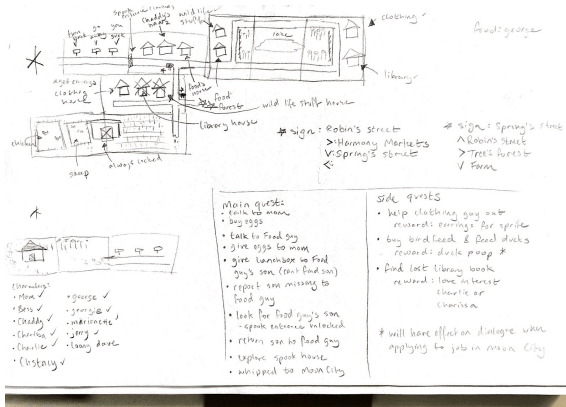 spook
entrance
chaddy's
wild life
stuff
clothing
library
food: george
lake
you
go
you
clothing
house
food
forest
wild life stuff house
library house
always locked
chicken
soup
* sign: Robin's street
>: Harmony Markets
V: Spring's street
<:
* sign: Spring's street
^ Robin's street
> Tree's forest
V Farm
main quest:
• talk to mom
• buy eggs
• talk to Food guy
• give eggs to mom
• give lunchbox to Food
guy's son (can't find son)
• report son missing to
food guy
• look for food guy's son
- spook entrance unlocked
• return son to food guy
• explore spook house
• whipped to Moon City
side quests
• help clothing guy out
reward: earrings for sprite
• buy bird feed & feed ducks
reward: duck poop *
• find lost library book
reward: love interest
charlie or
charissa
* will have effect on dialogue when
applying to job in Moon City
• Mom ✓
• Bess ✓
• Chaddy ✓
• Charlie ✓
• george ✓
• georgie ✓
• marionette ✓
• jerry ✓